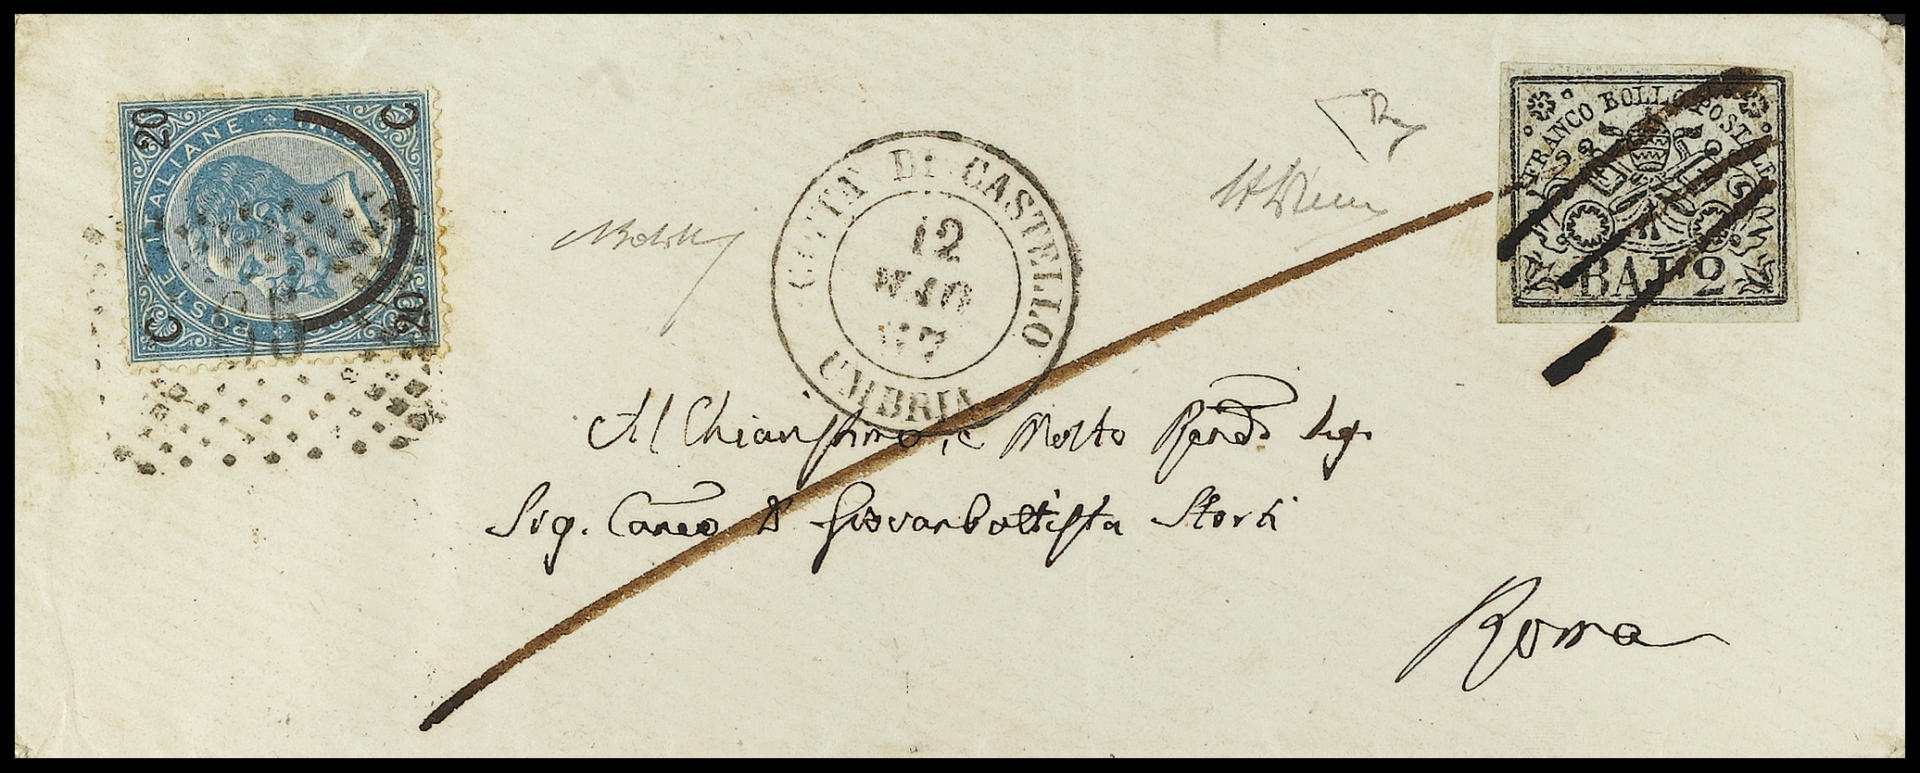 C 20 20 C
POSTE ITALIANE
FRANCO BOLLO POSTALE
BAJ 2
CITTA' DI CASTELLO
12
MAG
67
UMBRIA
95
Al Chiarissimo, e Molto Rendo Sig.
Sig. Caneo D Giovanbattista Storti
Roma